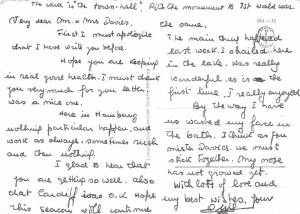 The card is the "town-hall". With the monument to 1st world war.
Very dear Mr. & Mrs Davies,
First I must apologize
that I have write you before.
Hope you are keeping
in real good health. I must thank
you very much for you letter
was a nice one.
Here in Hamburg
nothing particular happen, and
work as always. sometimes rush
and then nothing.
I glad to hear that
you are getting so well. Also
that Cardiff was O.K. Hope
this season will continue
the same.
The main thing happened
last week. I sailed here
in the lake. Was really
wonderful. as is the
first time, I really enjoyed
By the way I have
us washed my face in
the bath. I think as you
mister Davies. we must
stick together. My nose
has not growed yet.
With lots of love and
my best wishes, your